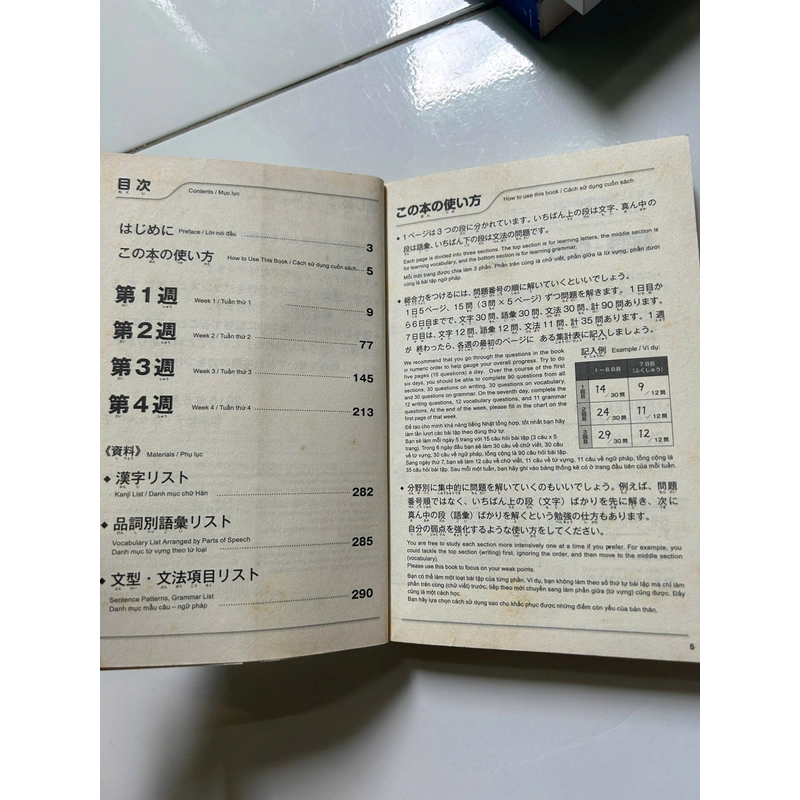 目次 Contents / Mục lục
はじめに Preface / Lời nói đầu 3
この本の使い方 How to Use This Book / Cách sử dụng cuốn sách 5
第1週 Week 1 / Tuần thứ 1 9
第2週 Week 2 / Tuần thứ 2 77
第3週 Week 3 / Tuần thứ 3 145
第4週 Week 4 / Tuần thứ 4 213
《資料》 Materials / Phụ lục
◆ 漢字リスト
Kanji List / Danh mục chữ Hán 282
◆ 品詞別語彙リスト
Vocabulary List Arranged by Parts of Speech
Danh mục từ vựng theo từ loại 285
◆ 文型・文法項目リスト
Sentence Patterns, Grammar List
Danh mục mẫu câu – ngữ pháp 290
この本の使い方 How to use this book / Cách sử dụng cuốn sách
• 1ページは3つの段に分かれています。いちばん上の段は文字、真ん中の
段は語彙、いちばん下の段は文法の問題です。
Each page is divided into three sections. The top section is for learning letters, the middle section is
for learning vocabulary, and the bottom section is for learning grammar.
Mỗi một trang được chia làm 3 phần. Phần trên cùng là chữ viết, phần giữa là từ vựng, phần dưới
cùng là bài tập ngữ pháp.
• 総合力をつけるには、問題番号の順に解いていくといいでしょう。
1日5ページ、15問(3問×5ページ)ずつ問題を解きます。1日目か
ら6日目までで、文字30問、語彙30問、文法30問、計90問あります。
7日目は、文字12問、語彙12問、文法11問、計35問あります。1週
が終わったら、各週の最初のページに ある集計表に記入しましょう。
We recommend that you go through the questions in the book
in numeric order to help gauge your overall progress. Try to do
five pages (15 questions) a day. Over the course of the first
six days, you should be able to complete 90 questions from all
sections; 30 questions on writing, 30 questions on vocabulary,
and 30 questions on grammar. On the seventh day, complete the
12 writing questions, 12 vocabulary questions, and 11 grammar
questions. At the end of the week, please fill in the chart on the
first page of that week.
記入例 Example / Ví dụ:
1~6日目 7日目(ふくしゅう)
1回目 14/30問 9/12問
2回目 24/30問 11/12問
3回目 29/30問 12/12問
Để tạo cho mình khả năng tiếng Nhật tổng hợp, tốt nhất bạn hãy
làm lần lượt các bài tập theo đúng thứ tự.
Bạn sẽ làm mỗi ngày 5 trang với 15 câu hỏi bài tập (3 câu x 5
trang). Trong 6 ngày đầu bạn sẽ làm 30 câu về chữ viết, 30 câu
về từ vựng, 30 câu về ngữ pháp, tổng cộng là 90 câu hỏi bài tập.
Sang ngày thứ 7, bạn sẽ làm 12 câu về chữ viết, 12 câu về từ vựng, 11 câu về ngữ pháp, tổng cộng là
35 câu hỏi bài tập. Sau mỗi một tuần, bạn hãy ghi vào bảng thống kê có ở trang đầu tiên của mỗi tuần.
• 分野別に集中的に問題を解いていくのもいいでしょう。例えば、問題
番号順ではなく、いちばん上の段(文字)ばかりを先に解き、次に
真ん中の段(語彙)ばかりを解くという勉強の仕方もあります。
自分の弱点を強化するような使い方をしてください。
You are free to study each section more intensively one at a time if you prefer. For example, you
could tackle the top section (writing) first, ignoring the order, and then move to the middle section
(vocabulary).
Please use this book to focus on your weak points.
Bạn có thể làm một loạt bài tập của từng phần. Ví dụ, bạn không làm theo số thứ tự bài tập mà chỉ làm
phần trên cùng (chữ viết) trước, tiếp theo mới chuyển sang làm phần giữa (từ vựng) cũng được. Đấy
cũng là một cách học.
Bạn hãy lựa chọn cách sử dụng sao cho khắc phục được những điểm còn yếu của bản thân.
5